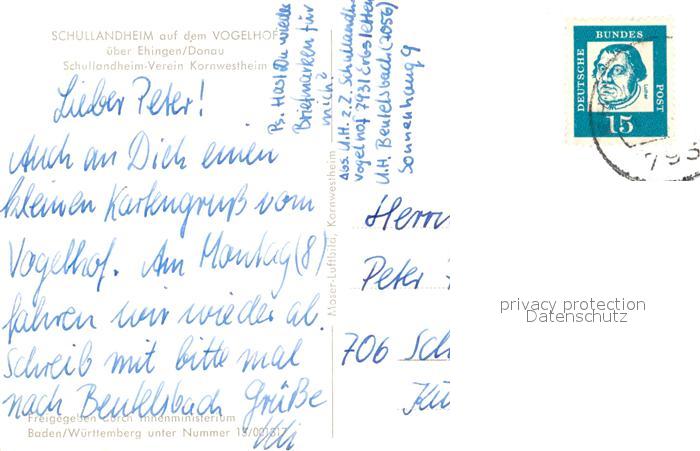 SCHULLANDHEIM auf dem VOGELHOF
über Ehingen/Donau
Schullandheim-Verein Kornwestheim
Lieber Peter!
Auch an Dich einen
kleinen Kartengruß vom
Vogelhof. Am Montag (8)
fahren wir wieder ab.
Schreib mit bitte mal
nach Beutelsbach Grüße
Uli
Freigegeben durch Innenministerium
Baden/Württemberg unter Nummer
Ps. Hast Du wieder
Briefmarken für
mich?
Moser-Luftbild, Kornwestheim
Abs. U.H. z.Z. Schullandh
Vogelhof 7931 Erbstetten
U.H. Beutelsbach (7056)
Sonnenhang 9
DEUTSCHE BUNDES POST
Luther
15
793
Herrn
Peter
706 Sch
privacy protection
Datenschutz